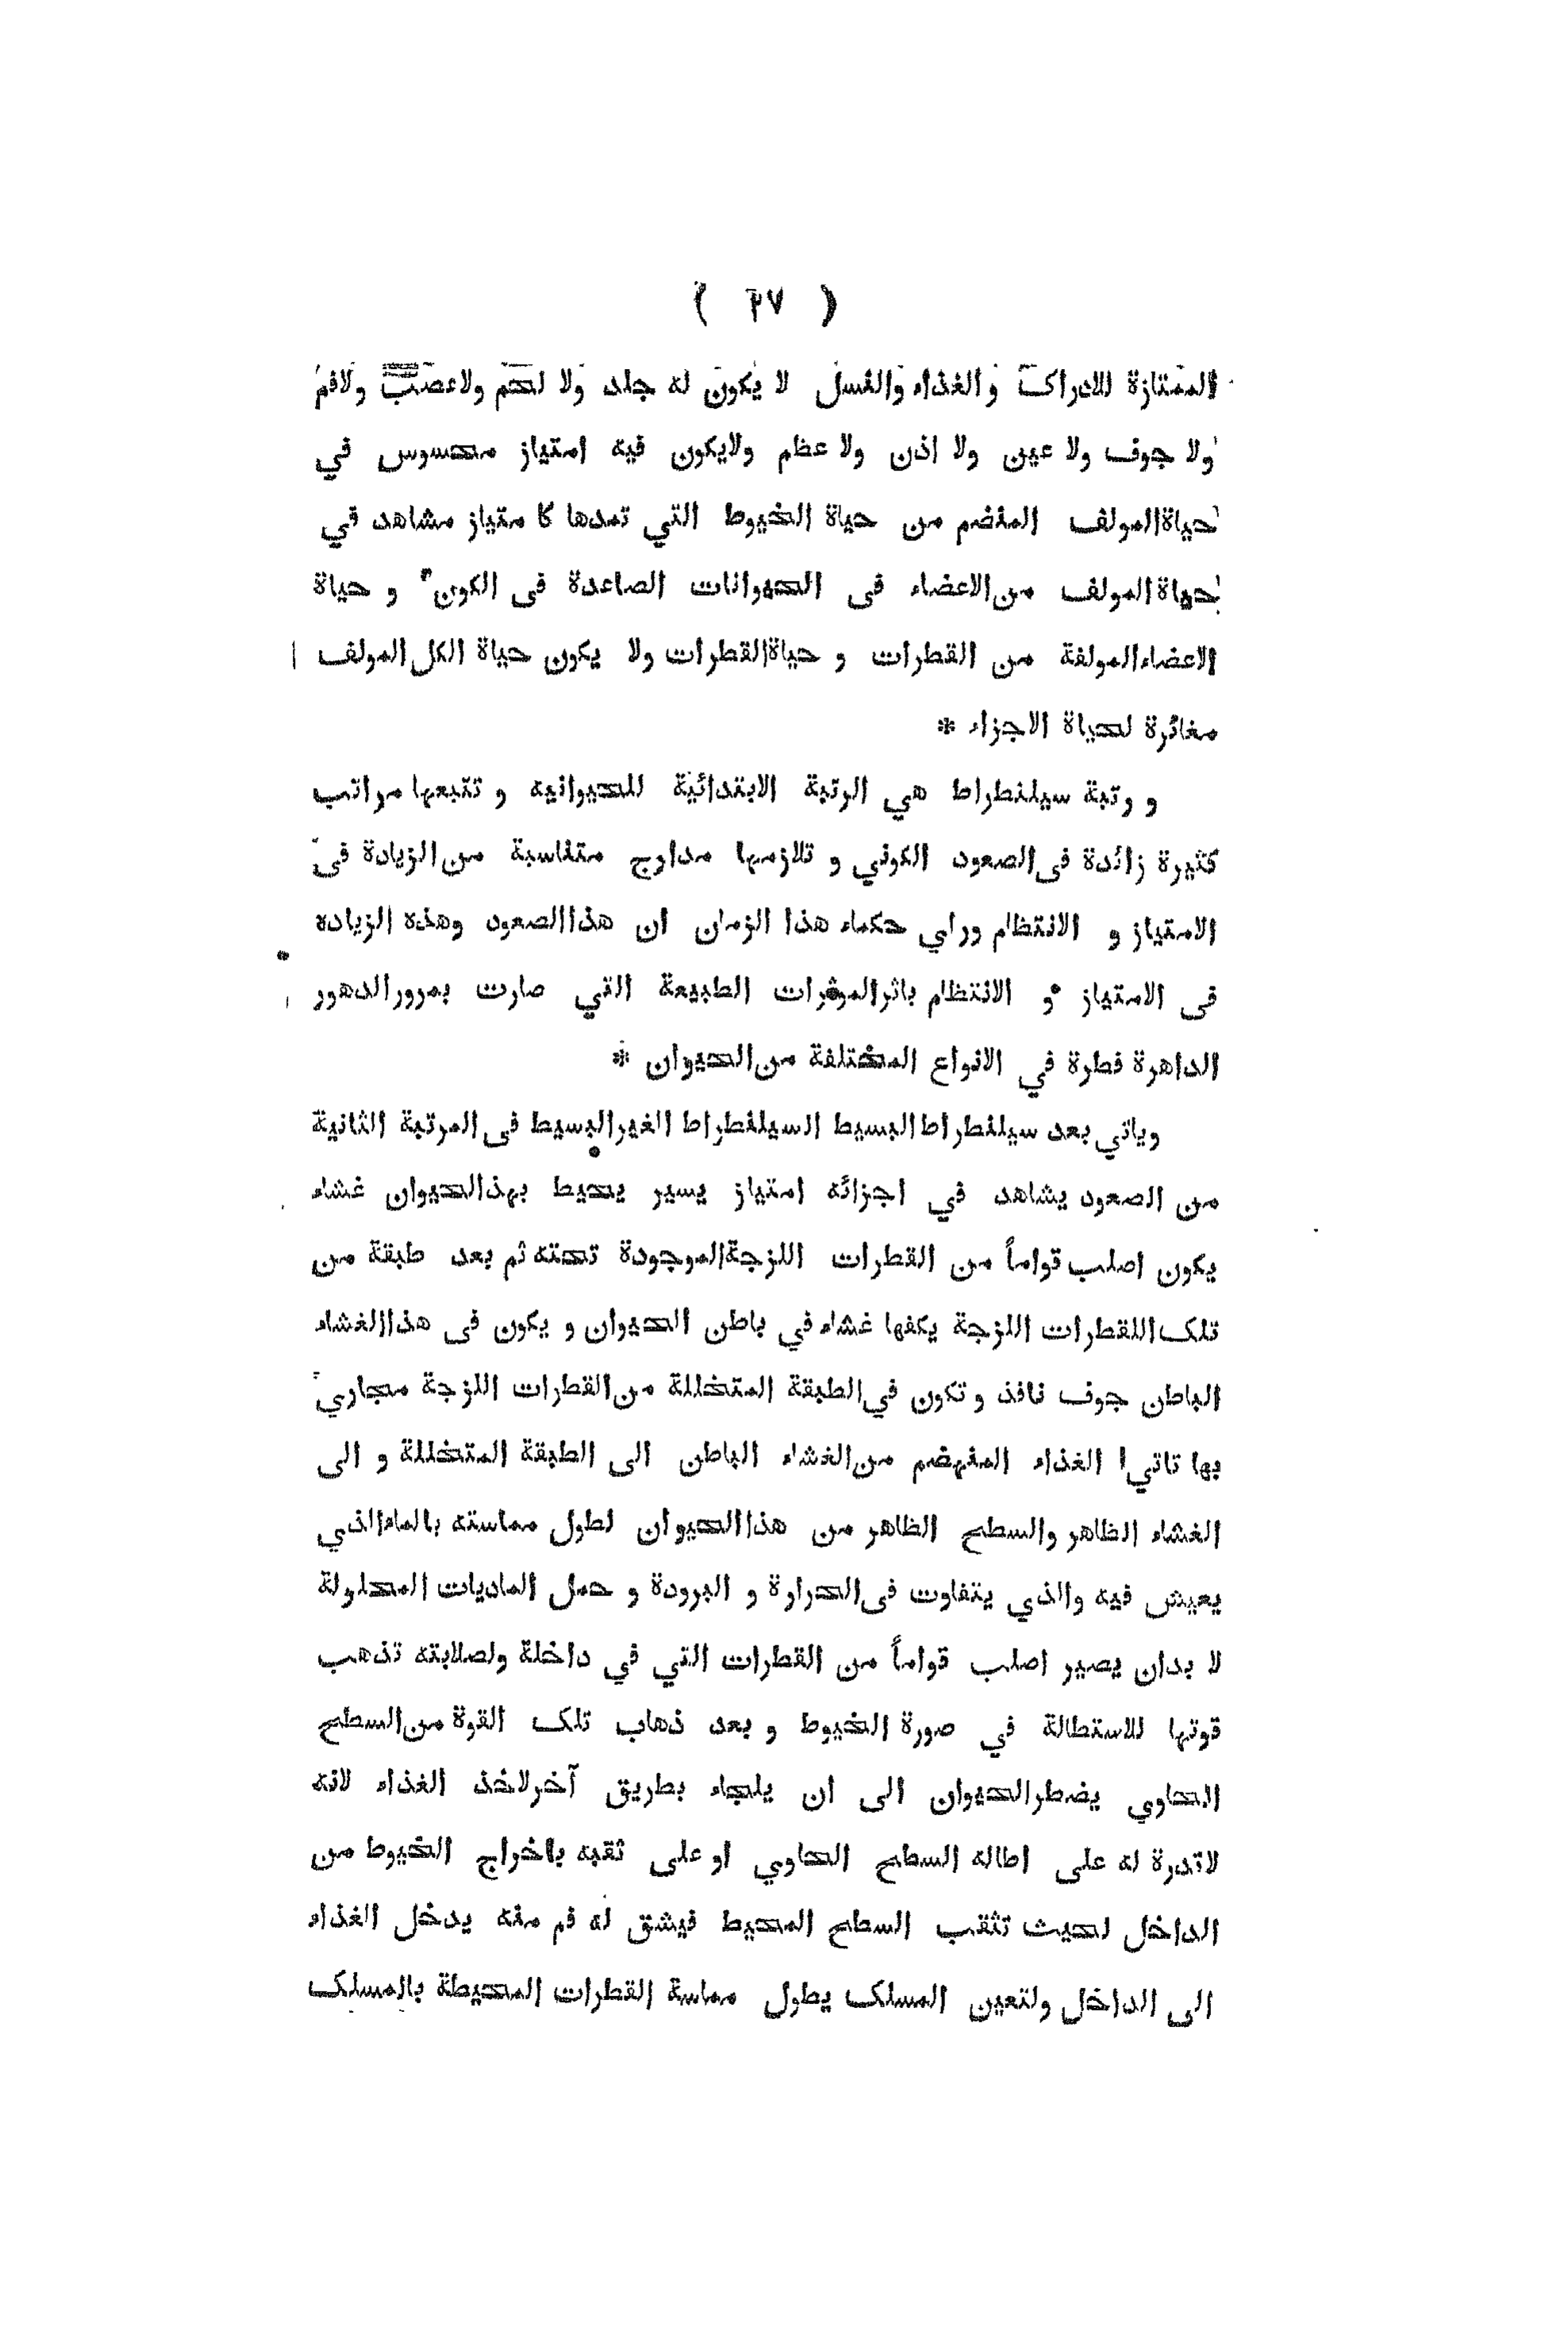 ( ٢٧ )
الممتازة للادراك و الغذاء والنسل لا يكون له جلد ولا لحم ولاعصب ولافم
ولا جوف ولا عين ولا اذن ولا عظم ولايكون فيه امتياز محسوس في
حياةالمولف المنضم من حياة الخيوط التي تمدها كا متياز مشاهد في
حياةالمولف من الاعضاء فى الحيوانات الصاعدة فى الكون و حياة
الاعضاءالمولفة من القطرات و حياةالقطرات ولا يكون حياة الكل المولف
مغائرة لحياة الاجزاء *
و رتبة سيلنطراط هي الرتبة الابتدائية للحيوانيه و تتبعها مراتب
كثيرة زائدة فى الصعود الكوني و تلازمها مدارج متناسبة من الزيادة فى
الامتياز و الانتظام وراي حكماء هذا الزمان ان هذاالصعود وهذه الزياده
فى الامتياز و الانتظام باثرالموثرات الطبيعة التي صارت بمرورالدهور
الداهرة فطرة في الانواع المختلفة من الحيوان *
وياتي بعد سيلنطراط البسيط السيلنطراط الغيرالبسيط فى المرتبة الثانية
من الصعود يشاهد في اجزائه امتياز يسير يحيط بهذالحيوان غشاء
يكون اصلب قواماً من القطرات اللزجةالموجودة تحته ثم بعد طبقة من
تلك اللقطرات اللزجة يكفها غشاء في باطن الحيوان و يكون فى هذاالغشاء
الباطن جوف نافذ و تكون في الطبقة المتخللة من القطرات اللزجة مجاري
بها تاتي الغذاء المنهضم من الغشاء الباطن الى الطبقة المتخللة و الى
الغشاء الظاهر والسطح الظاهر من هذاالحيوان لطول مماسته بالماءالذي
يعيش فيه والذي يتفاوت فى الحرارة و البرودة و حمل الماديات المحلولة
لا بدان يصير اصلب قواماً من القطرات التي في داخلة ولصلابته تذهب
قوتها للاستطالة في صورة الخيوط و بعد ذهاب تلك القوة من السطح
الحاوي يضطرالحيوان الى ان يلجاء بطريق آخرلاخذ الغذاء لانه
لاقدرة له على اطاله السطح الحاوي او على ثقبه باخراج الخيوط من
الداخل لحيث تثقب السطح المحيط فيشق له فم منه يدخل الغذاء
الى الداخل ولتعين المسلك يطول مماسة القطرات المحيطة بالمسلك